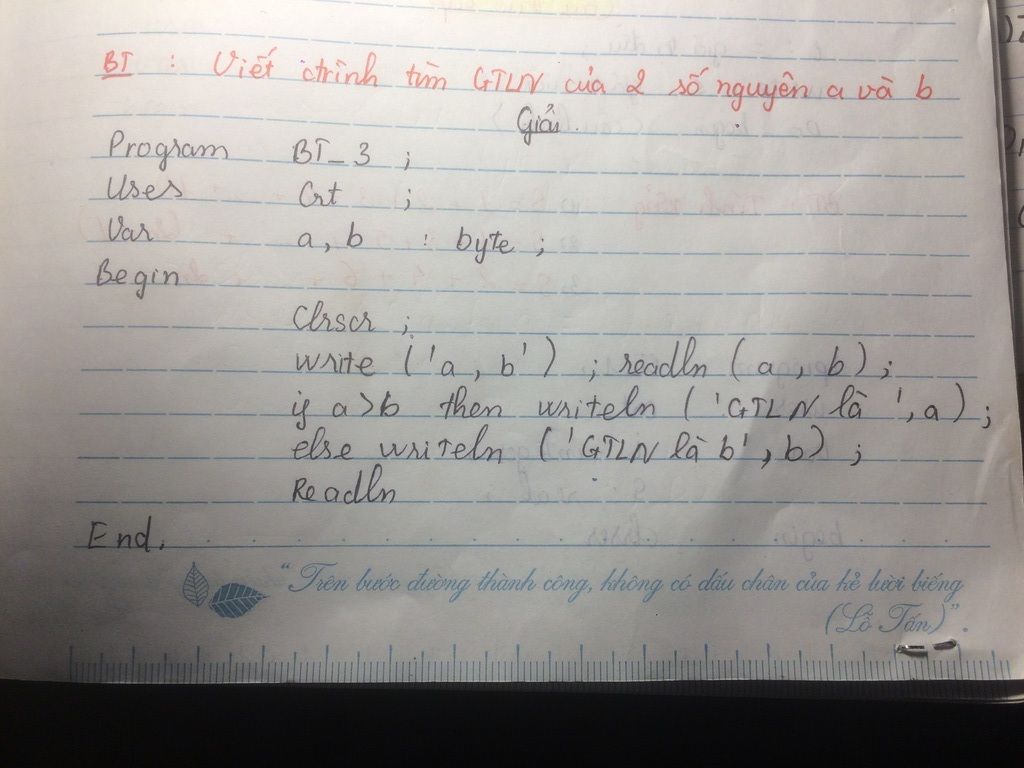 BT : Viết ctrình tìm GTLN của 2 số nguyên a và b
Giải.
Program BT_3 ;
Uses Crt ;
Var a, b : byte ;
Begin
Clrscr ;
write ('a, b') ; readln (a, b) ;
if a>b then writeln ('GTLN là ', a) ;
else writeln ('GTLN là b', b) ;
Readln
End.
“Trên bước đường thành công, không có dấu chân của kẻ lười biếng
(Lỗ Tấn)”.